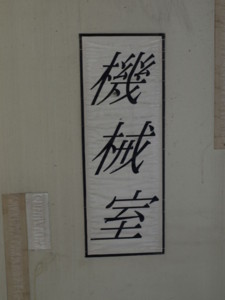 機械室